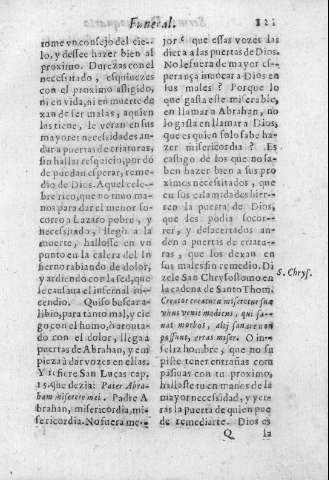 Funeral.
121
tome vn consejo del cie-
lo, y dessee hazer bien al
proximo. Durezas con el
necessitado, esquiuezes
con el proximo afligido,
ni en vida, ni en muerte de
xan de ser malas, a quien
las tiene, le veràn en sus
mayores necessidades an-
dar a puertas de criaturas,
sin hallar resquicio, por dò
de puedan esperar, reme-
dio de Dios. Aquel cele-
bre rico, que no tuuo ma-
nos para dar el menor so-
corro a Lazaro pobre, y
necessitado, llegò a la
muerte, hallosse en vn
punto en la calera del In
fierno rabiando de dolor,
y ardiendo con la sed, que
le causaua el infernal in-
cendio. Quiso buscar a-
libio, para tanto mal, y cie
go con el humo, ò atonta-
do con el dolor, llega a
puertas de Abrahan, y em
pieza a dar vozes en ellas.
Y refiere San Lucas cap.
15. que dezia: Pater Abra-
ham miserere mei. Padre A
brahan, misericordia, mi-
sericordia. No fuera me-
jor que essas vozes las
diera a las puertas de Dios.
No le fuera de mayor es-
perança inuocar a Dios en
sus males? Porque lo
que gasta este miserable,
en llamar a Abrahan, no
lo gasta en llamar a Dios,
que es quien solo sabe ha-
zer misericordia? Es
castigo de los que no sa-
ben hazer bien a sus pro
ximos necessitados, que
en sus calamidades hier-
ren la puerta de Dios,
que les podia socor-
rer, y desacertados an-
den a puertas de criatu-
ras, que los dexan en
sus males sin remedio. Di
zele San Chrysostomo en
la cadena de Santo Thom.
S. Chrys.
Creator creaturæ miseretur suæ
vnus venit medicus, qui sa-
nat morbos, alij sanare non
possunt, erras miser. O in-
feliz hombre, que no su
piste tener entrañas com
pasiuas con tu proximo,
hallaste tu en manos de la
mayor necessidad, y yer-
ras la puerta de quien pue
de remediarte. Dios es
Q
la